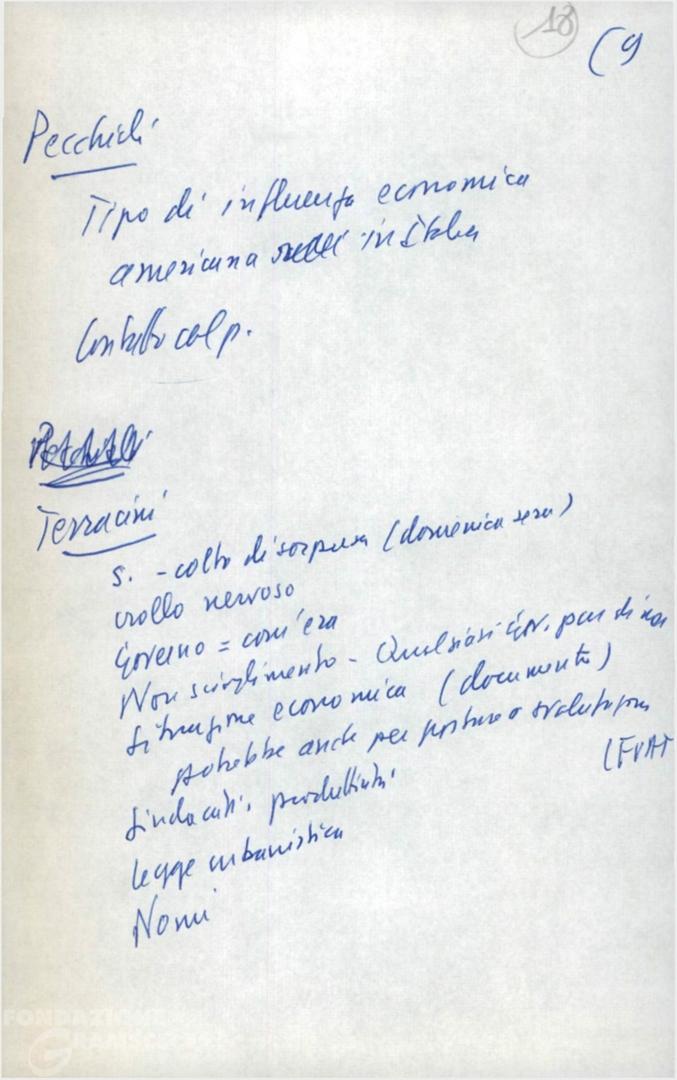 18 (9
Pecchioli
Tipo di influenza economica
americana in Italia
Contatto col p.
Terracini
S. - colto di sorpresa (domenica sera)
crollo nervoso
Governo = com'era
Non scioglimento - Qualsiasi Gov. pur di non
Situazione economica (documento)
potrebbe anche per portare a svalutazione
(FIAT
Sindacati, produttività
legge urbanistica
Nomi
FONDAZIONE
GRAMSCI